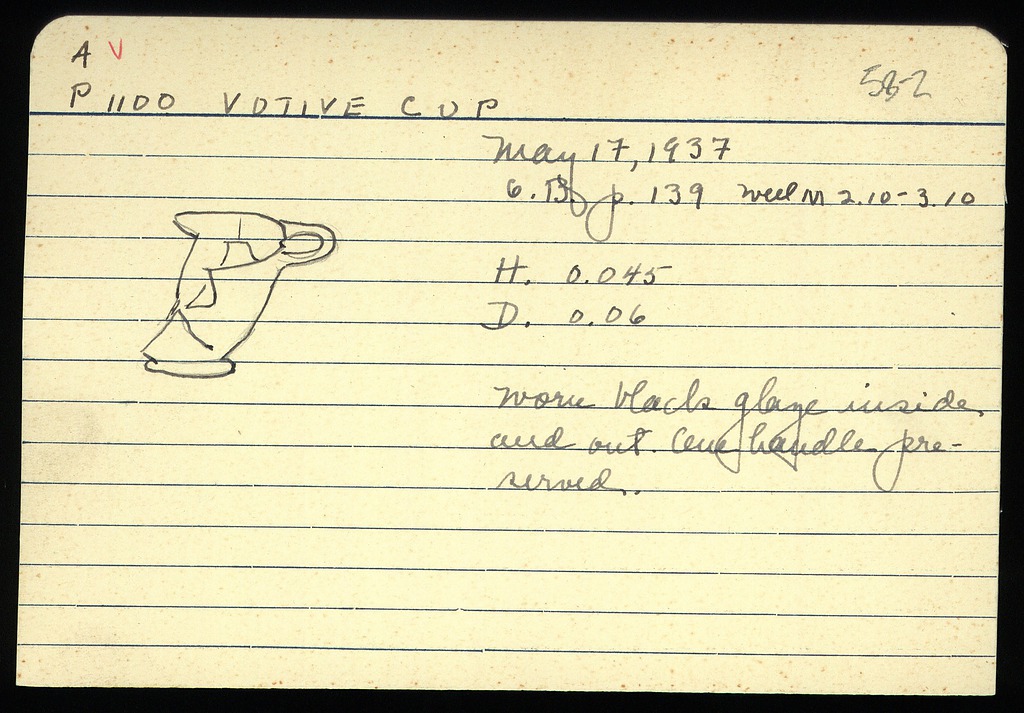 A V
P 1100 VOTIVE CUP
582
May 17, 1937
6. B. p. 139 Well M 2.10-3.10
H. 0.045
D. 0.06
Worn black glaze inside
and out. One handle pre-
served.